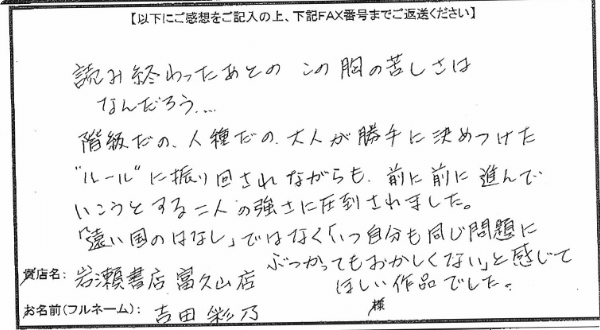 【以下にご感想をご記入の上、下記FAX番号までご返送ください】
読み終わったあとの この胸の苦しさは
なんだろう...
階級だの、人種だの、大人が勝手に決めつけた
"ルール"に振り回されながらも、前に前に進んで
いこうとする二人の強さに圧倒されました。
「遠い国のはなし」ではなく「いつ自分も同じ問題に
ぶつかってもおかしくない」と感じて
ほしい作品でした。
貴店名: 岩瀬書店 富久山店
お名前(フルネーム): 吉田 彩乃 様